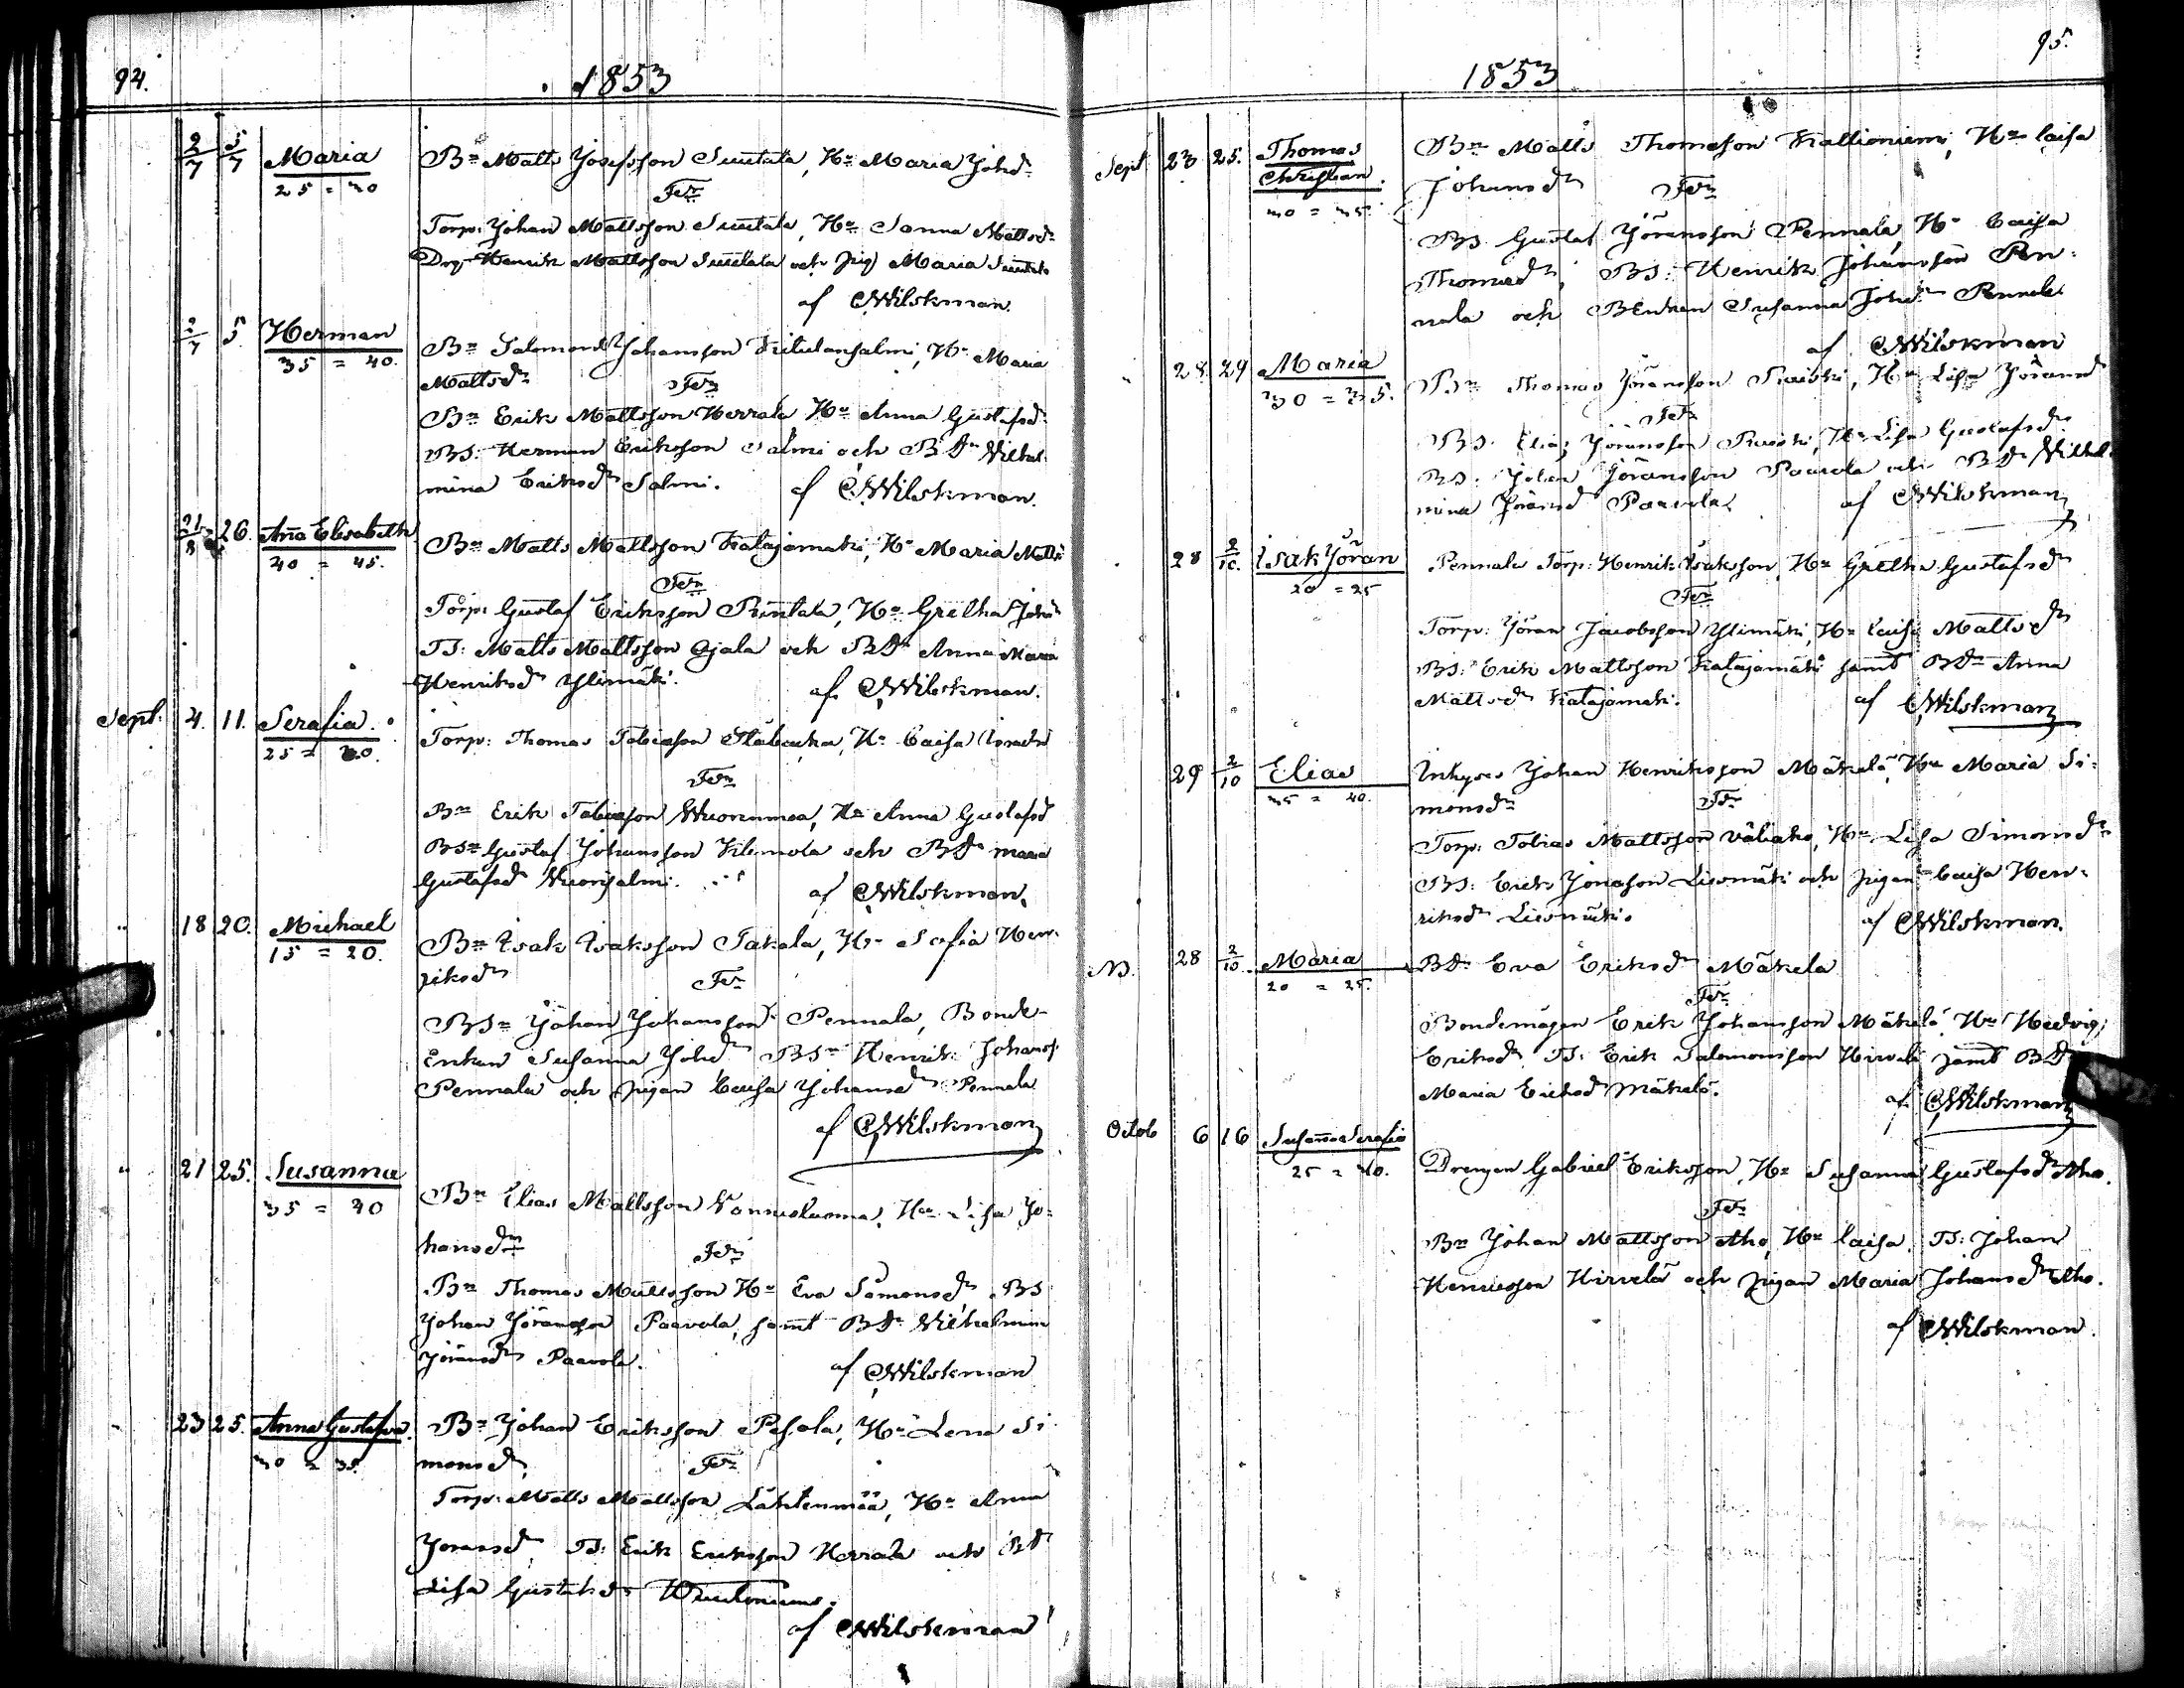 94.
1853
2/7 5/7 Maria Bn Matts Josefsson Hn Maria Johsdr
25 = 30 Fr
Torp: Johan Mattsson Hn Sanna Mattsdr
Drg Henrik Mattsson och Pig Maria
af CWilskman.
2/7 5. Herman Bn Salomon Johansson Hn Maria
35 = 40. Mattsdr Fr
Bn Erik Mattsson Herrala Hn Anna Gustafsd:
BS: Herman Eriksson Salmi och BDr Wilhel-
mina Eriksdr Salmi. af CWilskman.
21/8 26. Aña Elisabeth Bn Matts Mattsson Katajamäki, Hn Maria Matts
40 = 45. Fr
Torp: Gustaf Eriksson Hn Gretha Johsdr
TS: Matts Mattsson Ojala och BDr Anna Maria
Henriksdr Ylimäki. af CWilskman.
Sept. 4. 11. Serafia. Torp: Thomas Tobiasson Hn Caisa
25 = 30. Fr
Bn Erik Tobiasson Wuorenmaa, Hn Anna Gustafsd
BSn Gustaf Johansson Kilemola och BDr Maria
Gustafsd af CWilskman.
" 18 20. Michael Bn Isak Isaksson Takala, Hn Sofia Hen-
15 = 20. riksdr Fr
BSn Johan Johansson Pennala, Bonde-
Enkan Susanna Johsdr BSn Henrik Johanss
Pennala och pigan Caisa Johansdr Pennala
af CWilskman
" 21 25. Susanna Bn Elias Mattsson Hn Lisa Jo-
35 = 40 hansdr Fr
Bn Thomas Mattsson Hn Eva Simonsdr BS
Johan Jöransson Paavola, samt BDr Wilhelmin
Jöransdr Paavola. af CWilskman
23 25. Anna Gustafva. Bn Johan Eriksson Pesola, Hn Lena Si-
30 = 35. monsd. Fr
Torp: Matts Mattsson Lahtenmää, Hn Anna
Joransdr TS: Erik Eriksson Herrala och BDr
Lisa Gustafsdr
af CWilskman
95.
1853
Sept 23 25. Thomas Bn Matts Thomasson Kallioniemi, Hn Caisa
Christian. Johansdr Fr
30 = 35. BS. Gustaf Jöransson Pennala, Hn Caisa
Thomasdr, BS: Henrik Johansson Pen-
nala och BEnkan Susanna Johsdr Pennala
af CWilskman
" 28. 29 Maria Bn Thomas Jöransson Hn Lisa Jöransd
30 = 35. Fr
BS. Elias Jöransson Hn Lisa Gustafsd.
BS. Johan Jöransson Paavola och BDr Wilhel-
mina Jöransd Paavola. af CWilskman
28 2/10. Isak Jöran Pennala Torp: Henrik Isaksson, Hn Gretha Gustafsdr
20 = 25 Fr
Torp: Jöran Jacobsson Ylimäki, Hn Caisa Mattsdr
BS: Erik Mattsson Katajamäki samt BDr Anna
Mattsdr Katajamäki. af CWilskman
29 2/10 Elias Inhyses Johan Henriksson Mäkelä, Hn Maria Si-
35 = 40. monsdr Fr
Torp: Tobias Mattsson Väliaho, Hn Lisa Simonsdr
BS: Erik Jonasson Liesmäki och pigan Caisa Hen-
riksdr Liesmäki. af CWilskman.
NB. 28 2/10. Maria BDr Eva Eriksdr Mäkelä
20 = 25. Fr
Bondemågen Erik Johansson Mäkelä Hn Hedvig
Eriksdr. TS: Erik Salomonsson Hirvelä samt BDr
Maria Eriksd Mäkelä. af CWilskman
Octob 6 16 Susaña Serafia Drengen Gabriel Eriksson, Hn Susanna Gustafsdr Aho.
25 = 30. Fr
Bn Johan Mattsson Aho, Hn Caisa. TS: Johan
Henriksson Hirvelä och pigan Maria Johansdr Aho.
af CWilskman.